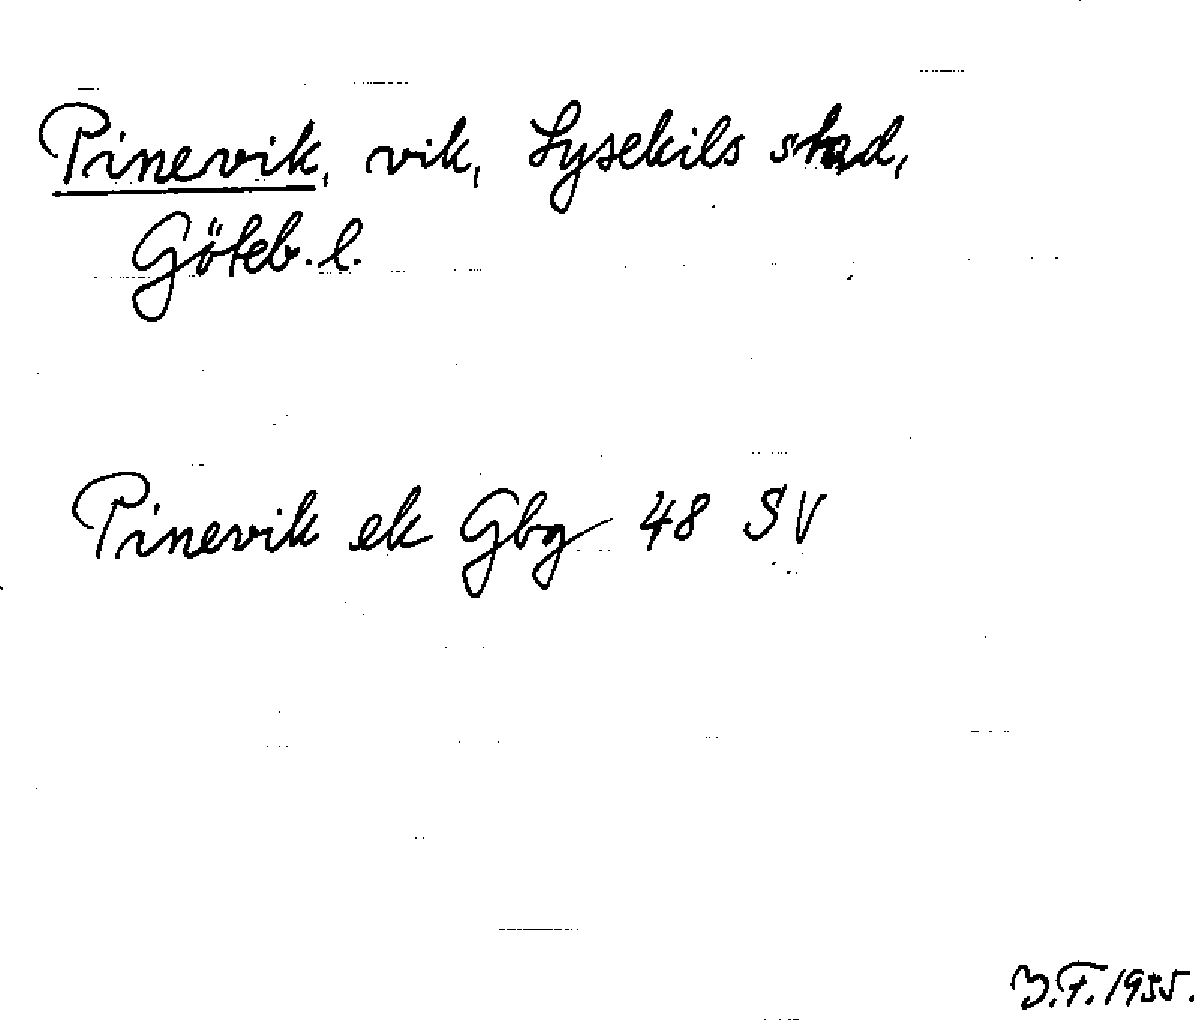 Pinevik, vik, Lysekils stad,
Göteb. l.
Pinevik ek Gbg 48 SV
J.F. 1955.